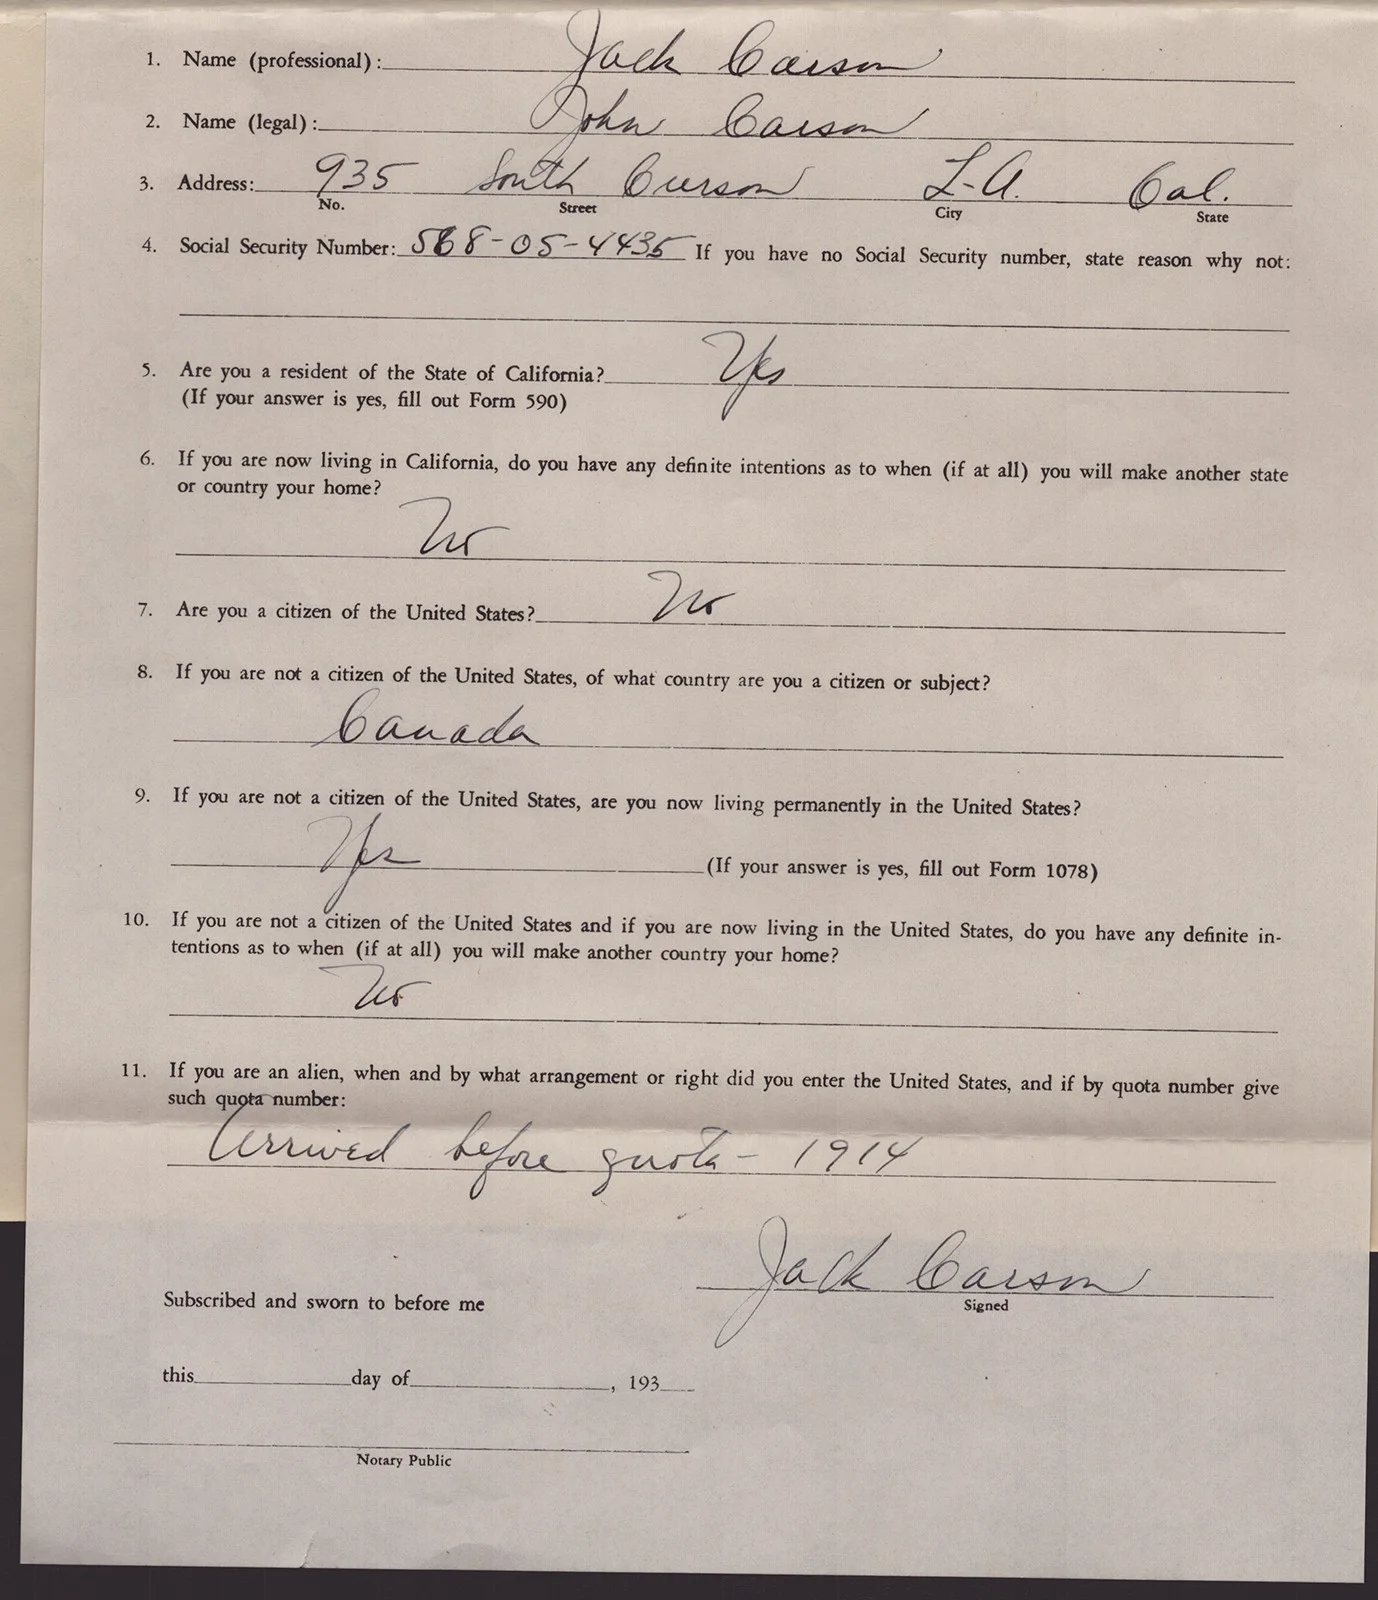 1. Name (professional): Jack Carson
2. Name (legal): John Carson
3. Address: 935 South Curson L-A. Cal.
No. Street City State
4. Social Security Number: 568-05-4435 If you have no Social Security number, state reason why not:
5. Are you a resident of the State of California? Yes
(If your answer is yes, fill out Form 590)
6. If you are now living in California, do you have any definite intentions as to when (if at all) you will make another state
or country your home?
No
7. Are you a citizen of the United States? No
8. If you are not a citizen of the United States, of what country are you a citizen or subject?
Canada
9. If you are not a citizen of the United States, are you now living permanently in the United States?
Yes (If your answer is yes, fill out Form 1078)
10. If you are not a citizen of the United States and if you are now living in the United States, do you have any definite in-
tentions as to when (if at all) you will make another country your home?
No
11. If you are an alien, when and by what arrangement or right did you enter the United States, and if by quota number give
such quota number:
Arrived before quota - 1914
Jack Carson
Signed
Subscribed and sworn to before me
this day of , 193
Notary Public